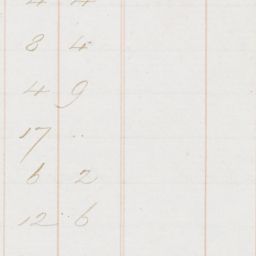 4 4
8 4
4 9
17 ..
6 2
12 .. 6